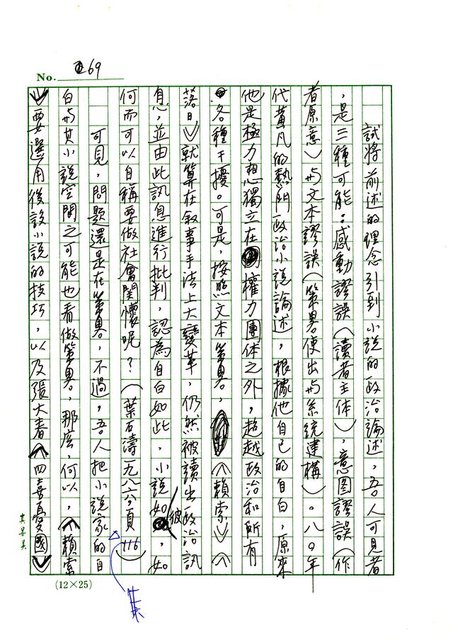 No. 69
試將前述的理念引到小說的政治論述，吾人可見者
，是三種可能：感動謬誤（讀者主体），意圖謬誤（作
者原意）與文本謬誤（策畧使出與系統建構）。八〇年
代黃凡的熱門政治小說論述，根據他自己的自白，原來
他是極力想獨立在權力團体之外，超越政治和所有
各種干擾。可是，按照文本策畧，《賴索》《
落日》就算在敘事手法上大變革，仍然被讀出政治訊
息，並由此訊息進行批判，認為自白如此，小說如彼，如
何而可以自稱要做社會關懷呢？（葉石濤一九八六，頁116）
可見，問題還是在策畧。不過，吾人把小說家的自
白與其小說空間之可能也看做策畧，那麼何以，《賴索
》要選用後設小說的技巧，以及張大春《四喜憂國》
(12×25)
葉